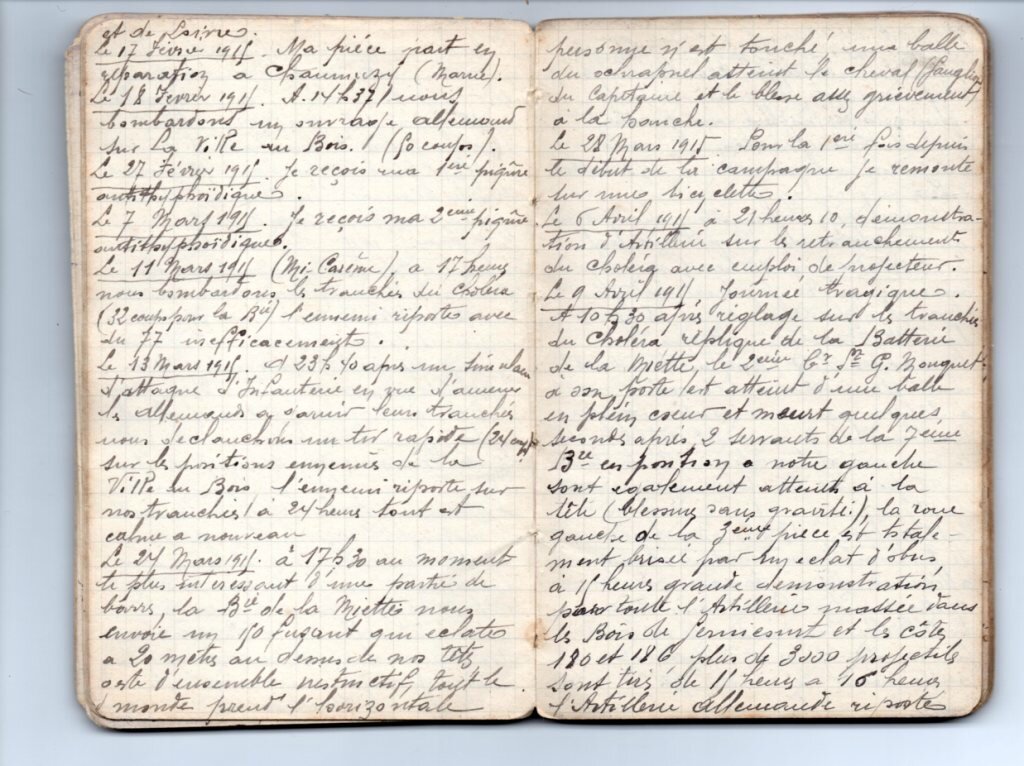 et de Loivre.
Le 17 Févrie 1915. Ma pièce part en
réparation a Chaumuzy (Marne).
Le 18 Fevrier 1915. A. 14h37 nous
bombardons un ouvrage allemand
sur La Ville au Bois. (50 coups).
Le 27 Février 1915. Je reçois ma 1ère piqûre
antithyphoïdique.
Le 7 Mars 1915. Je reçois ma 2ème piqûre
antithyphoïdique.
Le 11 Mars 1915 (Mi-Carême), a 17 heures
nous bombardons les tranchés du cholera
(32 coups pour la Bie) l'ennemi riposte avec
du 77 inefficacement.
Le 13 Mars 1915. A 23h40 apres un simulacre
d'attaque d'Infanterie en vue d'amener
les allemands a garnir leurs tranchés
nous declanchons un tir rapide (24 coups)
sur les positions ennemies de la
Ville au Bois, l'ennemi riposte sur
nos tranches à 24 heures tout est
calme a nouveau
Le 24 Mars 1915. à 17h30 au moment
le plus interessant d'une partie de
barres, la Bie de la Miette nous
envoie un 150 fusant qui eclate
a 20 mètres au dessus de nos têtes
geste d'ensemble instinctif, tout le
monde prend l'horizontale
personne n'est touché, une balle
du schrapnel atteint le cheval (Sanglier)
du Capitaine et le blesse assez grievement
à la hanche.
Le 28 Mars 1915 Pour la 1ère fois depuis
le début de la campagne je remonte
sur une bicyclette.
Le 6 Avril 1915 à 21 heures 10, démonstra-
tion d'Artillerie sur les retranchements
du Choléra avec emploi de projecteur.
Le 9 Avril 1915, Journée tragique.
A 10h30 après réglage sur les tranchés
du Choléra réplique de la Batterie
de la Miette, le 2ème Cr St G. Bouquet
à son poste est atteint d'une balle
en plein coeur et meurt quelques
secondes aprés, 2 servants de la 7ème
Bie en position a notre gauche
sont egalement atteints à la
tête (blessures sans gravité), la roue
gauche de la 3ème pièce est totale-
ment brisée par un eclat d'obus
à 15 heures grande demonstration
par toute l'Artillerie massée dans
les Bois de Gernicourt et les côtes
180 et 186 plus de 3000 projectiles
sont tirés de 15 heures a 16 heures
l'Artillerie allemande riposte